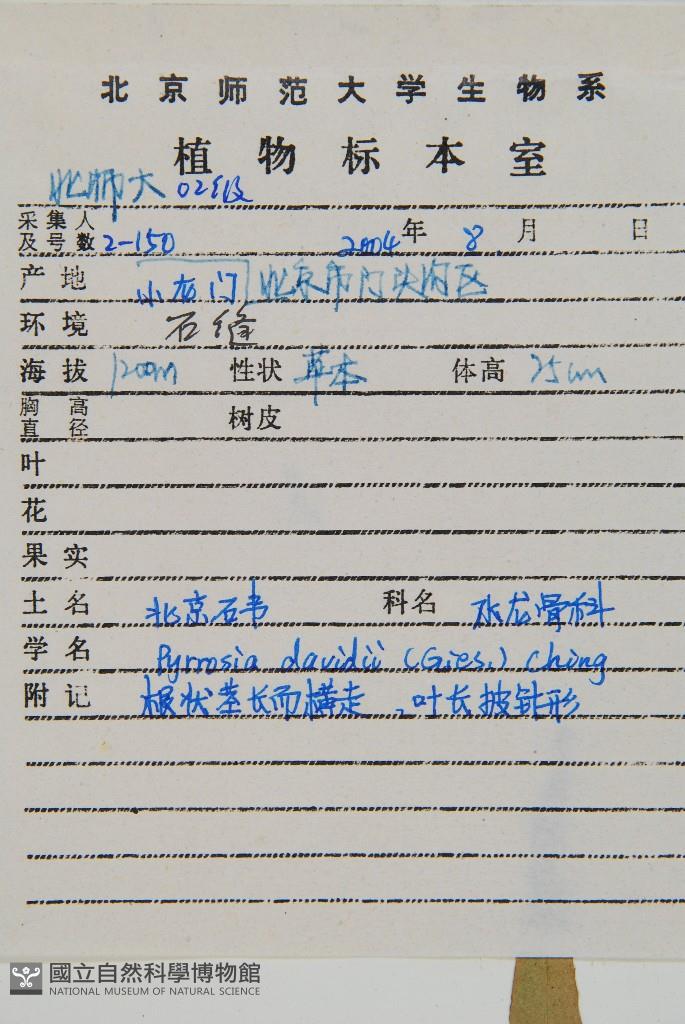 北京师范大学生物系
植物标本室
北师大 02级
采集人及号数 2-150 2004年 8月 日
产地 小龙门 北京市门头沟区
环境 石缝
海拔 1200m 性状 草本 体高 25cm
胸高直径 树皮
叶
花
果实
土名 北京石韦 科名 水龙骨科
学名 Pyrrosia davidii (Gies.) Ching
附记 根状茎长而横走，叶长披针形
國立自然科學博物館
NATIONAL MUSEUM OF NATURAL SCIENCE